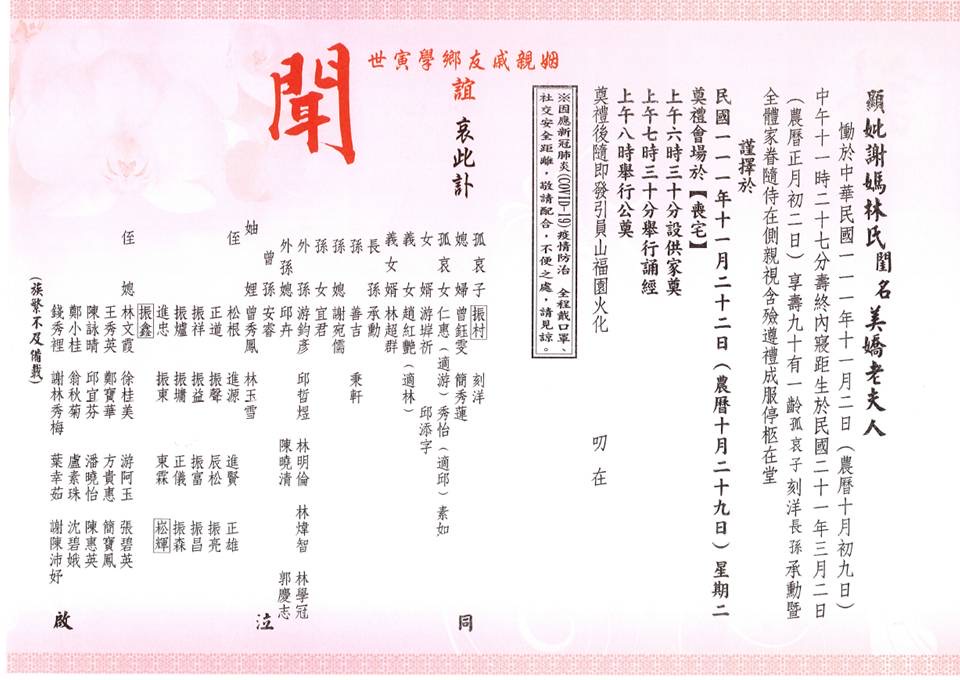 顯妣謝媽林氏閨名美嬌老夫人
慟於中華民國一一一年十一月二日(農曆十月初九日)
中午十一時二十七分壽終內寢距生於民國二十一年三月二日
(農曆正月初二日)享壽九十有一齡孤哀子刻洋長孫承勳暨
全體家眷隨侍在側親視含殮遵禮成服停柩在堂
謹擇於
民國一一一年十一月二十二日(農曆十月二十九日)星期二
奠禮會場於【喪宅】
上午六時三十分設供家奠
上午七時三十分舉行誦經
上午八時舉行公奠
奠禮後隨即發引員山福園火化
叨在
※因應新冠肺炎(COVID-19)疫情防治 全程戴口罩、
社交安全距離,敬請配合,不便之處,請見諒。
姻親戚友鄉學寅世
誼 哀此訃
聞
孤哀子 振村 刻洋
媳婦 曾鈺雯 簡秀蓮
孤哀女 仁惠(適游)秀怡(適邱)素如
女婿 游崋祈 邱添字
義女 趙紅艷(適林)
義女婿 林超群
長孫 承勳
孫 善吉 秉軒
孫媳 謝宛儒
孫女 宜君
外孫 游鈞彥 邱哲煜 林明倫 林煒智 林學冠
外孫媳 邱卉 陳曉清 郭慶志
曾孫 安睿
妯娌 曾秀鳳 林玉雪
侄 松根 進源 進賢 正雄
正道 振聲 辰松 振亮
振祥 振益 振富 振昌
振爐 振墉 正儀 振森
進忠 振東 東霖 崧輝
振鑫
侄媳 林文霞 徐桂美 游阿玉 張碧英
王秀英 鄭寶華 方貴惠 簡寶鳳
陳詠晴 邱宜芬 潘曉怡 陳惠英
鄭小桂 翁秋菊 盧素珠 沈碧娥
錢秀裡 謝林秀梅 葉幸茹 謝陳沛妤
(族繁不及備載)
同
泣
啟